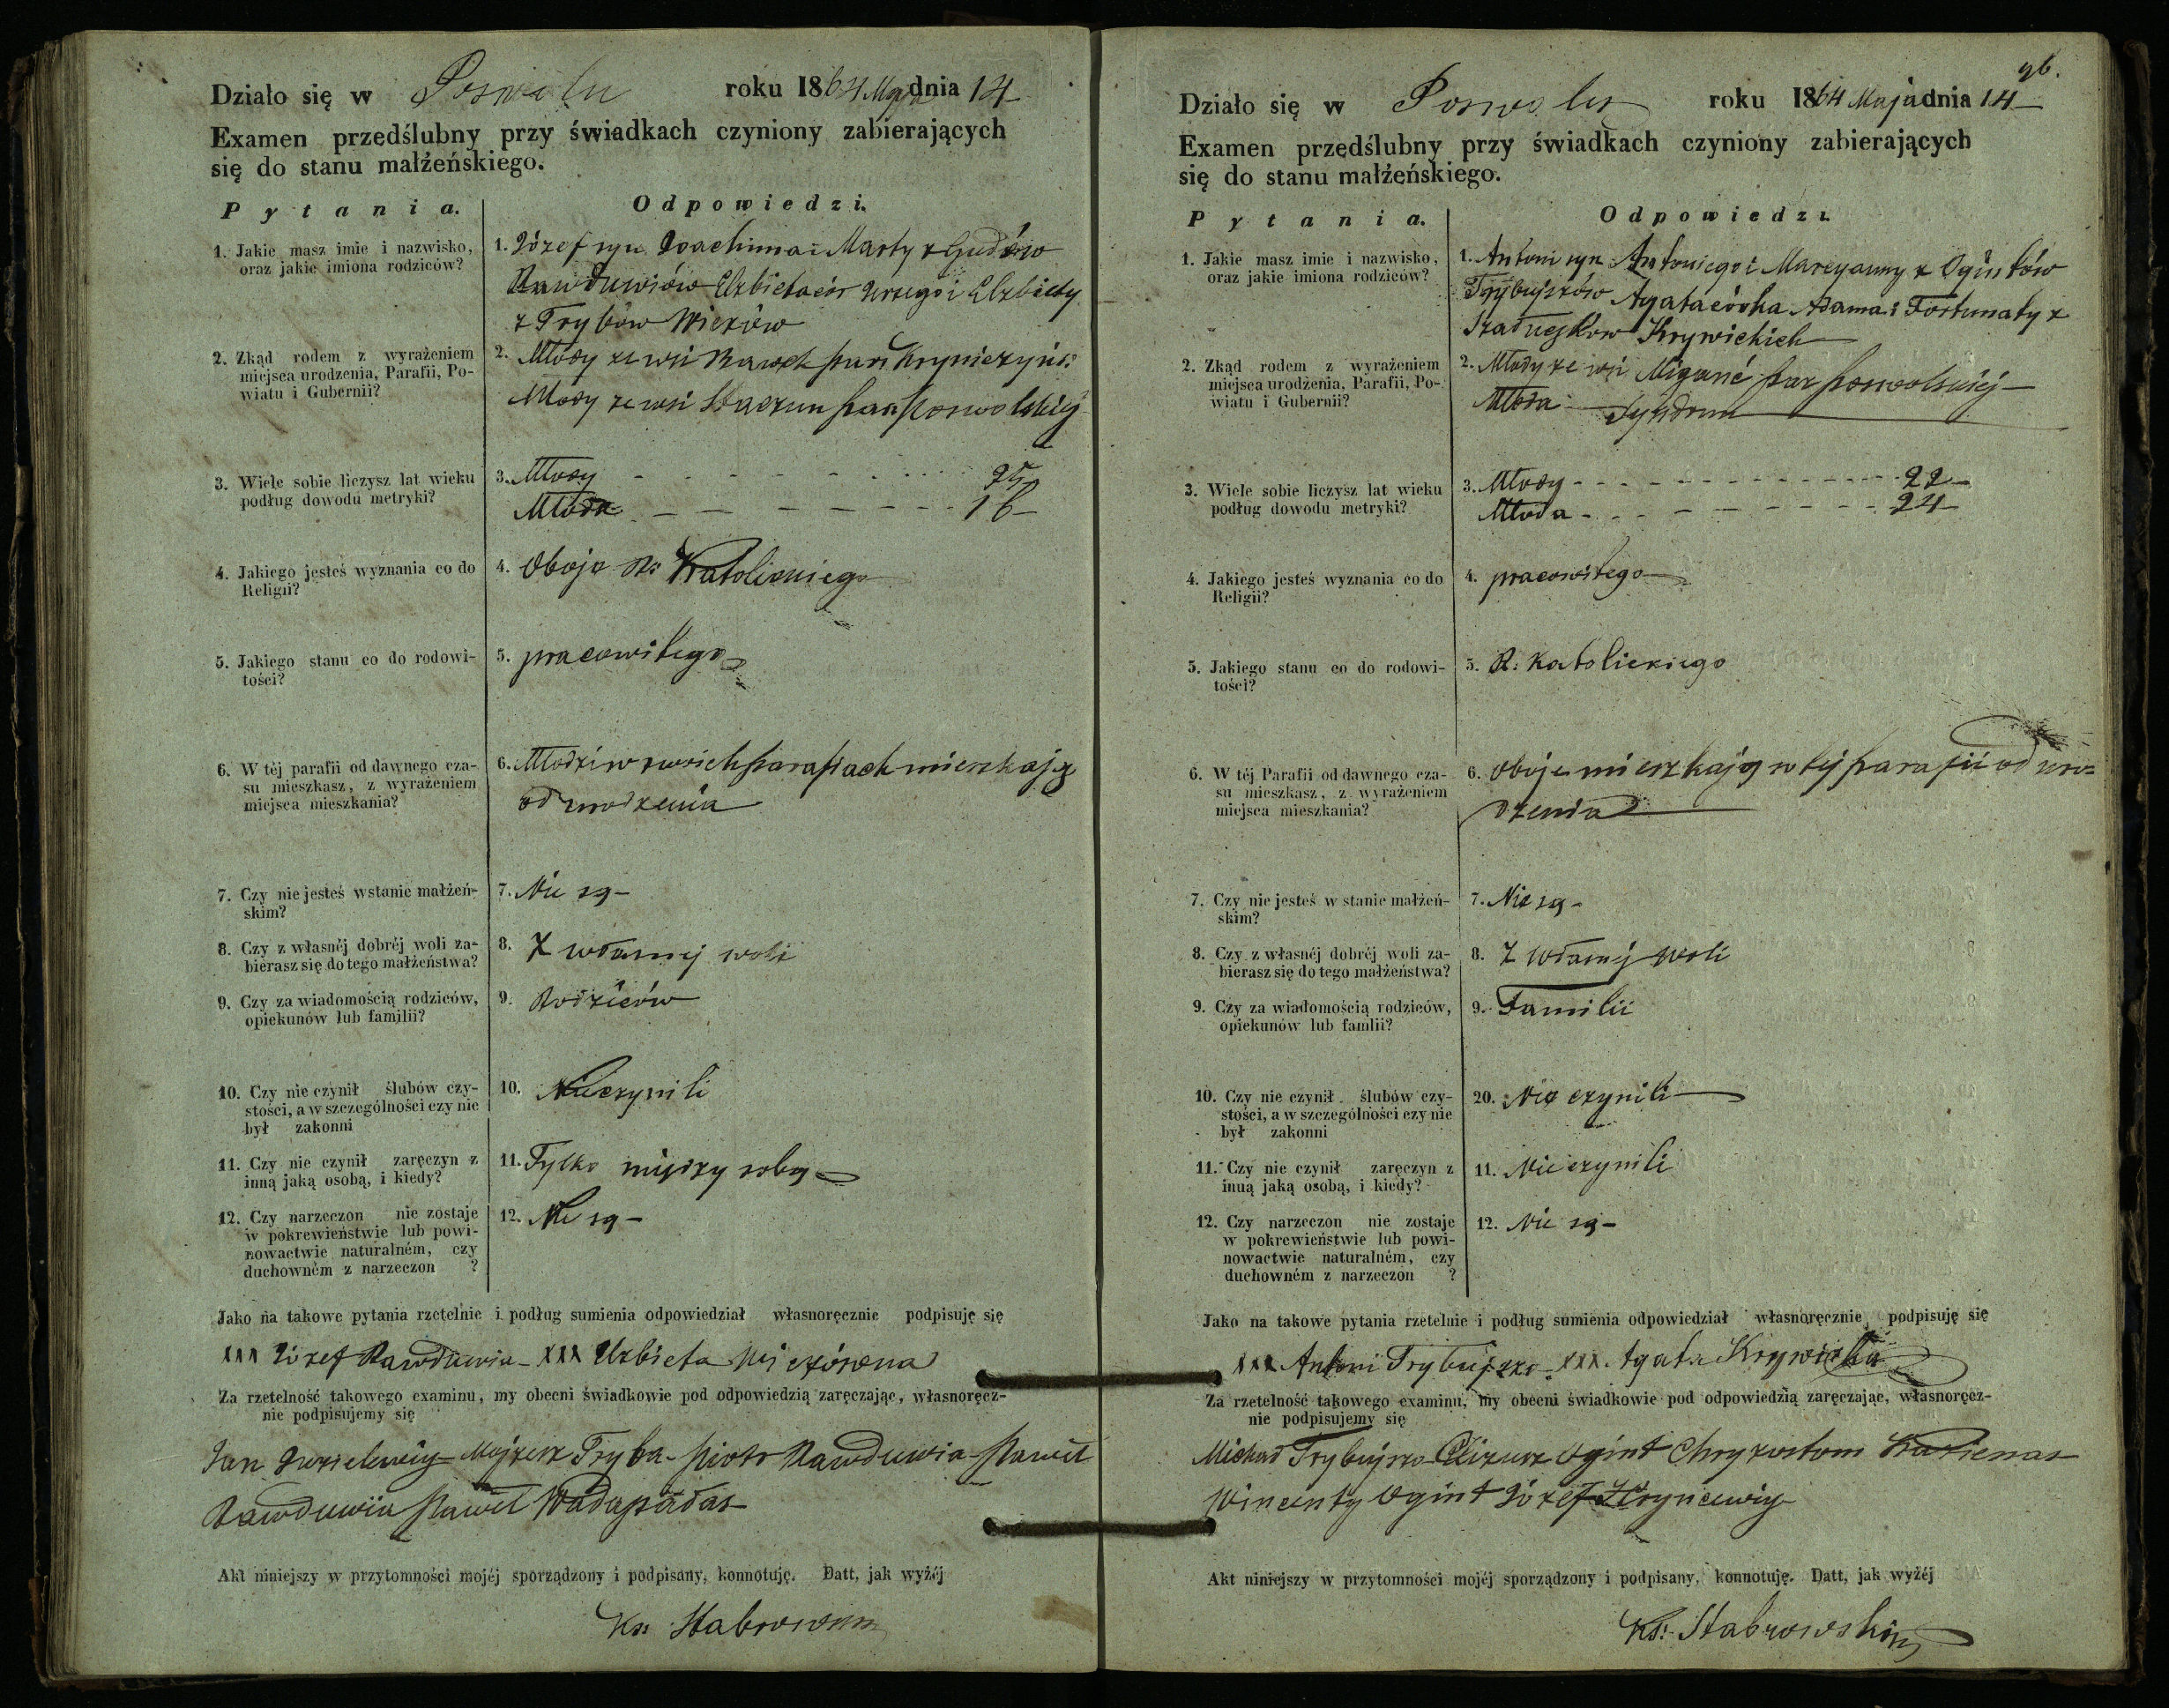 Działo się w Poswolu roku 1864 Maja dnia 14
Examen przedślubny przy świadkach czyniony zabierających
się do stanu małżeńskiego.
Pytania. Odpowiedzi.
1. Jakie masz imie i nazwisko,
oraz jakie imiona rodziców?
1. Józef syn Joachima i Marty z
Elzbieta cór i Elzbiety
z Trybów
2. Zkąd rodem z wyrażeniem
miejsca urodzenia, Parafii, Po-
wiatu i Gubernii?
2. Młody ze wsi par
ze wsi par Poswolskiej
3. Wiele sobie liczysz lat wieku
podług dowodu metryki?
3. Młody 25
Młoda 18
4. Jakiego jesteś wyznania co do
Religii?
4. Oboje Rz Katolickiego
5. Jakiego stanu co do rodowi-
tości?
5. pracowitego
6. W téj parafii od dawnego cza-
su mieszkasz, z wyrażeniem
miejsca mieszkania?
6. Młodzi w swoich parafiach mieszkają
od urodzenia
7. Czy nie jesteś w stanie małżeń-
skim?
7. Nie są
8. Czy z własnéj dobréj woli za-
bierasz się do tego małżeństwa?
8. Z własnej woli
9. Czy za wiadomością rodziców,
opiekunów lub familii?
9. Rodziców
10. Czy nie czynił ślubów czy-
stości, a w szczególności czy nie
był zakonni
10. Nie czynili
11. Czy nie czynił zaręczyn z
inną jaką osobą, i kiedy?
11. Tylko między sobą
12. Czy narzeczon nie zostaje
w pokrewieństwie lub powi-
nowactwie naturalném, czy
duchowném z narzeczon ?
12. Nie są
Jako na takowe pytania rzetelnie i podług sumienia odpowiedział własnoręcznie podpisuję się
XXX Józef Rawduwia XXX Elzbieta
Za rzetelność takowego examinu, my obecni świadkowie pod odpowiedzią zaręczając, własnoręcz-
nie podpisujemy się
Jan Mojżesz Tryba Piotr Rawduwia Paweł
Rawduwia Paweł
Akt niniejszy w przytomności mojéj sporządzony i podpisany, konnotuję. Datt, jak wyżéj
Ks: Stabrowski
96.
Działo się w Poswolu roku 1864 Maja dnia 14
Examen przedślubny przy świadkach czyniony zabierających
się do stanu małżeńskiego.
Pytania. Odpowiedzi.
1. Jakie masz imie i nazwisko,
oraz jakie imiona rodziców?
1. Antoni syn Antoniego i Maryanny z Ogintów
Trybujszów Agata córka Adama i Fortunaty z
Krywickich
2. Zkąd rodem z wyrażeniem
miejsca urodzenia, Parafii, Po-
wiatu i Gubernii?
2. Młody ze wsi par Poswolskiej
Młoda
3. Wiele sobie liczysz lat wieku
podług dowodu metryki?
3. Młody 22
Młoda 24
4. Jakiego jesteś wyznania co do
Religii?
4. pracowitego
5. Jakiego stanu co do rodowi-
tości?
5. R: Katolickiego
6. W téj Parafii od dawnego cza-
su mieszkasz, z wyrażeniem
miejsca mieszkania?
6. Oboje mieszkają w tej parafii od uro-
dzenia
7. Czy nie jesteś w stanie małżeń-
skim?
7. Nie są
8. Czy z własnéj dobréj woli za-
bierasz się do tego małżeństwa?
8. Z własnej woli
9. Czy za wiadomością rodziców,
opiekunów lub familii?
9. Familii
10. Czy nie czynił ślubów czy-
stości, a w szczególności czy nie
był zakonni
20. Nie czynili
11. Czy nie czynił zaręczyn z
inną jaką osobą, i kiedy?
11. Nie czynili
12. Czy narzeczon nie zostaje
w pokrewieństwie lub powi-
nowactwie naturalném, czy
duchowném z narzeczon ?
12. Nie są
Jako na takowe pytania rzetelnie i podług sumienia odpowiedział własnoręcznie podpisuję się
XXX Antoni Trybujszo XXX Agata Krywicka
Za rzetelność takowego examinu, my obecni świadkowie pod odpowiedzią zaręczając, własnoręcz-
nie podpisujemy się
Michał Trybujszo Ogint Chryzostom
Wincenty Ogint Józef Hryncewicz
Akt niniejszy w przytomności mojéj sporządzony i podpisany, konnotuję. Datt, jak wyżéj
Ks: Stabrowski